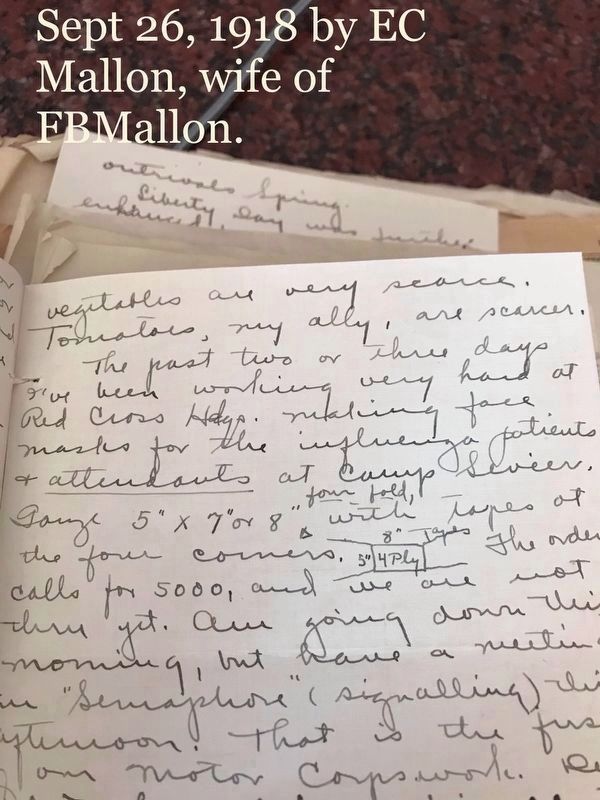 Sept 26, 1918 by EC
Mallon, wife of
FBMallon.
outrivals Spring.
Liberty Day was further
enhanced,
vegitables are very scarce.
Tomatoes, my ally, are scarcer.
The past two or three days
I've been working very hard at
Red Cross Hdqs. making face
masks for the influenza patients
+ attendants at Camp Sevier.
four fold,
Gauze 5" x 7" or 8" with tapes at
8" Tapes
the four corners. 5" 4 Ply The order
calls for 5000, and we are not
thru yet. Am going down this
morning, but have a meetin
in "Semaphore" (signalling) thi
afternoon. That is the firs
our Motor Corps work. Re